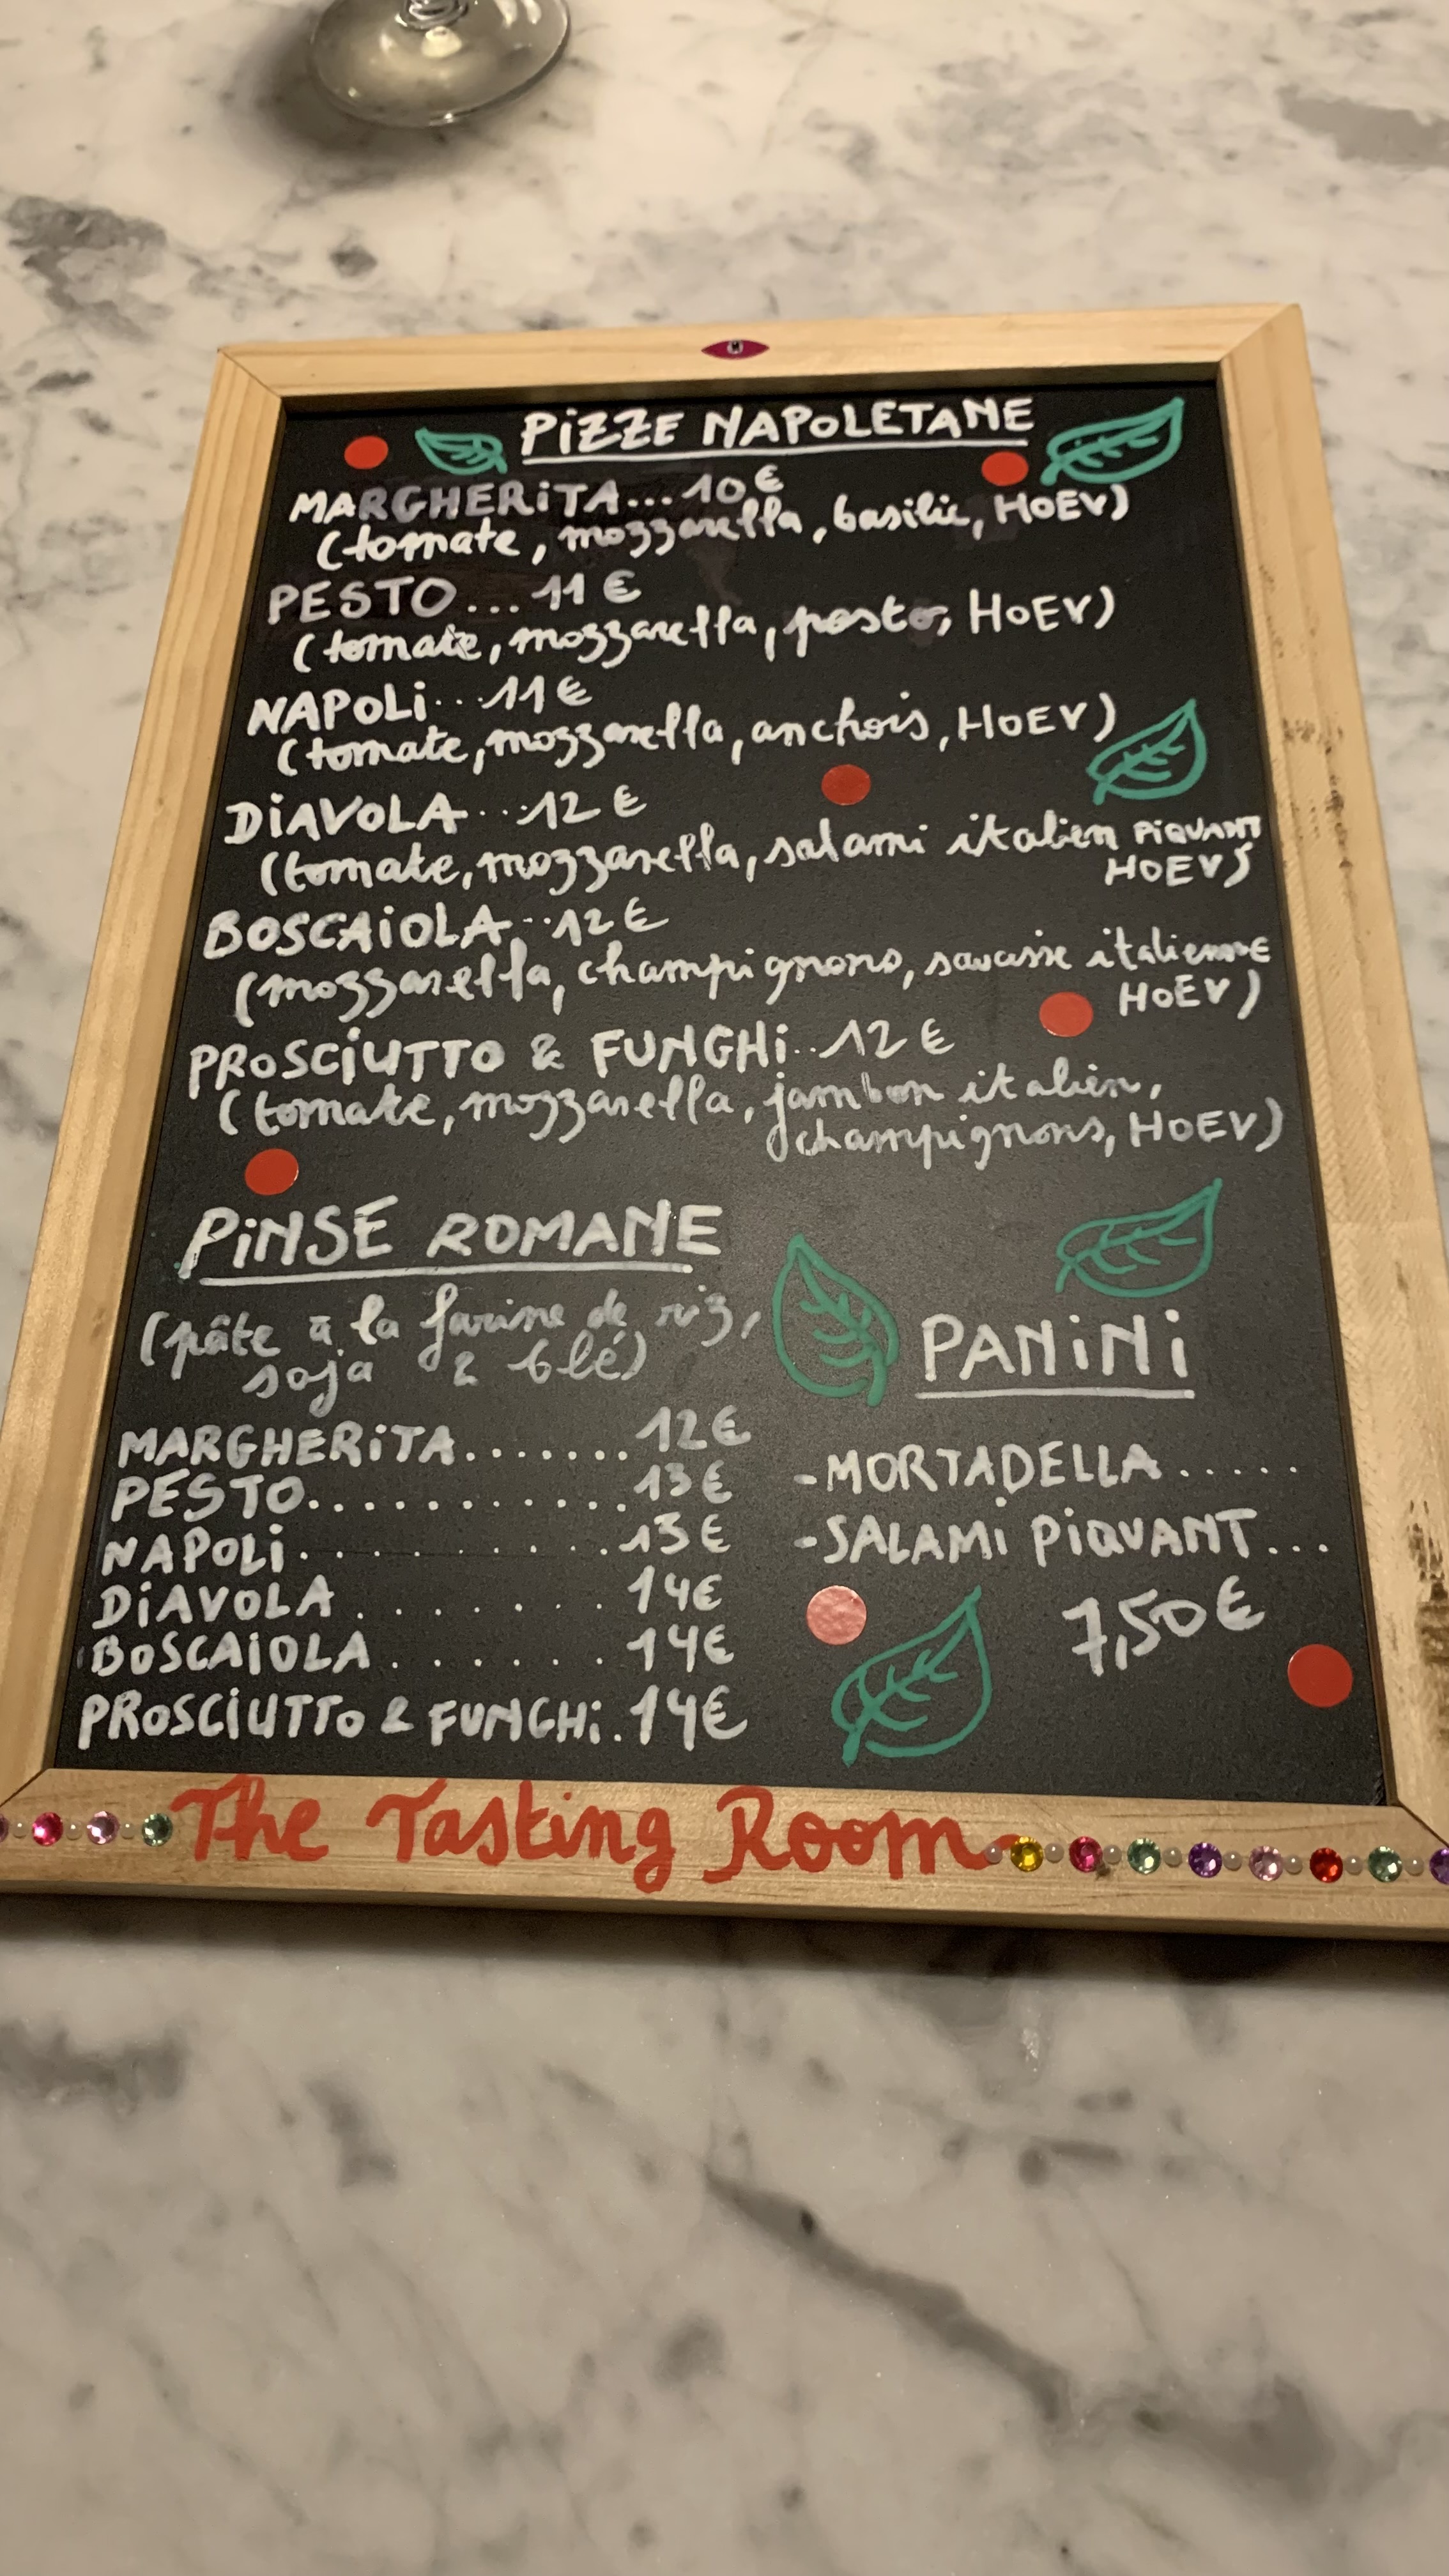 PiZZE NAPOLETANE
MARGHERiTA...10€
(tomate, mozzarella, basilic, HOEV)
PESTO...11€
(tomate, mozzarella, pesto, HOEV)
NAPOLi...11€
(tomate, mozzarella, anchois, HOEV)
DiAVOLA...12€
(tomate, mozzarella, salami italien PiQUANT
HOEV)
BOSCAiOLA...12€
(mozzarella, champignons, saucisse italienne
HOEV)
PROSCiUTTO & FUNGHi..12€
(tomate, mozzarella, jambon italien,
champignons, HOEV)
PiNSE ROMANE
(pâte à la farine de riz,
soja & blé)
MARGHERiTA.......12€
PESTO............13€
NAPOLi..........13€
DiAVOLA........14€
BOSCAiOLA.......14€
PROSCiUTTO & FUNGHi.14€
PANiNi
-MORTADELLA......
-SALAMi PiQUANT...
7,50€
The Tasting Room